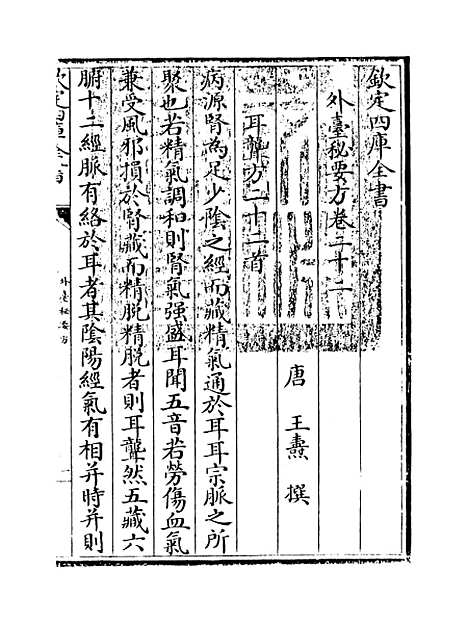 欽定四庫全書
外臺秘要方卷二十二
唐 王燾 撰
耳聾方二十二首
病源腎為足少陰之經而藏精氣通於耳耳宗脈之所
聚也若精氣調和則腎氣强盛耳聞五音若勞傷血氣
兼受風邪損於腎藏而精脱精脱者則耳聾然五藏六
腑十二經脈有絡於耳者其陰陽經氣有相并時并則
欽定四庫全書
外臺秘要方
一